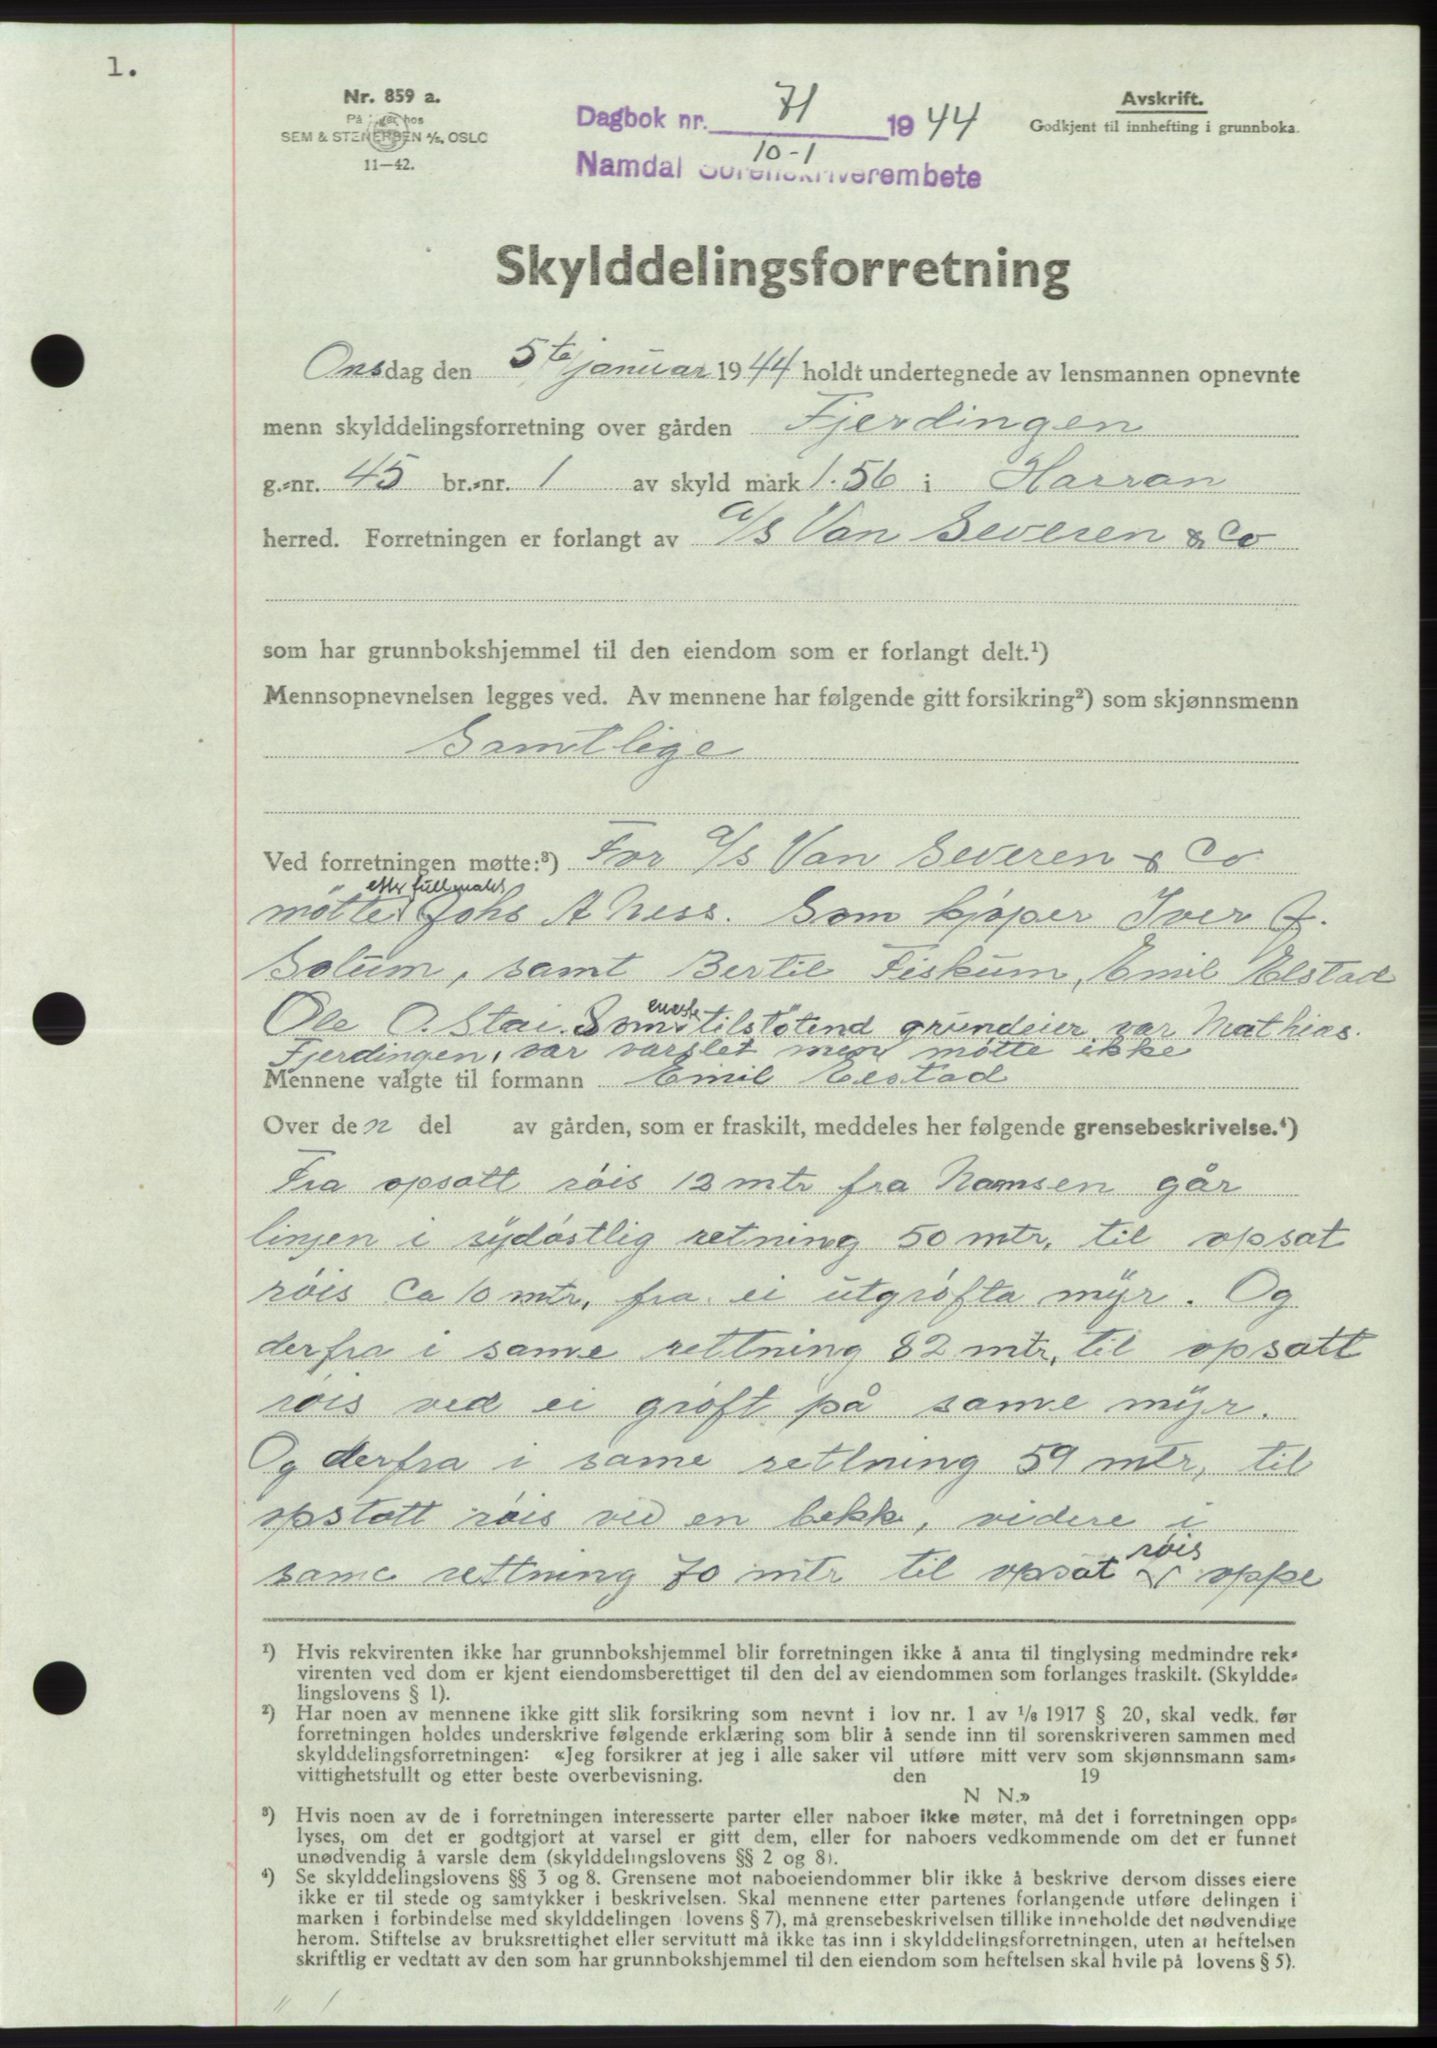 1.
Nr. 859 a.
På hos
SEM & STENERSEN A/S, OSLO
11—42.
Dagbok nr. 71 1944
10-1
Namdal Sorenskriverembete
Avskrift.
Godkjent til innhefting i grunnboka.
Skylddelingsforretning
Onsdag den 5te januar 1944 holdt undertegnede av lensmannen opnevnte
menn skylddelingsforretning over gården Fjerdingen
g.-nr. 45 br.-nr. 1 av skyld mark 1.56 i Harran
herred. Forretningen er forlangt av a/s Van Severen & Co
som har grunnbokshjemmel til den eiendom som er forlangt delt.¹)
Mennsopnevnelsen legges ved. Av mennene har følgende gitt forsikring²) som skjønnsmenn
Samtlige
Ved forretningen møtte:³) For a/s Van Severen & Co
etter fullmakt
møtte Johs A Ness. Som kjøper Iver J.
Solum, samt Bertil Fiskum, Emil Elstad
Ole O. Stai. Som eneste tilstøtend grundeier var Mathias
Fjerdingen, var varslet men møtte ikke
Mennene valgte til formann Emil Elstad
Over den del av gården, som er fraskilt, meddeles her følgende grensebeskrivelse.⁴)
Fra opsatt røis 12 mtr fra Namsen går
linjen i sydøstlig retning 50 mtr, til opsat
røis ca 10 mtr, fra ei utgrøfta myr. Og
derfra i same rettning 82 mtr, til opsatt
røis ved ei grøft på same myr.
Og derfra i same rettning 59 mtr, til
opstatt røis ved en bekk, videre i
same rettning 70 mtr til opsat røis oppe
¹) Hvis rekvirenten ikke har grunnbokshjemmel blir forretningen ikke å anta til tinglysing medmindre rek-
virenten ved dom er kjent eiendomsberettiget til den del av eiendommen som forlanges fraskilt. (Skyldde-
lingslovens § 1).
²) Har noen av mennene ikke gitt slik forsikring som nevnt i lov nr. 1 av 1/8 1917 § 20, skal vedk. før
forretningen holdes underskrive følgende erklæring som blir å sende inn til sorenskriveren sammen med
skylddelingsforretningen: «Jeg forsikrer at jeg i alle saker vil utføre mitt verv som skjønnsmann sam-
vittighetsfullt og etter beste overbevisning. den 19
N N.»
³) Hvis noen av de i forretningen interesserte parter eller naboer ikke møter, må det i forretningen opp-
lyses, om det er godtgjort at varsel er gitt dem, eller for naboers vedkommende om det er funnet
unødvendig å varsle dem (skylddelingslovens §§ 2 og 8).
⁴) Se skylddelingslovens §§ 3 og 8. Grensene mot naboeiendommer blir ikke å beskrive dersom disses eiere
ikke er til stede og samtykker i beskrivelsen. Skal mennene etter partenes forlangende utføre delingen i
marken i forbindelse med skylddelingen lovens § 7), må grensebeskrivelsen tillike inneholde det nødvendige
herom. Stiftelse av bruksrettighet eller servitutt må ikke tas inn i skylddelingsforretningen, uten at heftelsen
skriftlig er vedtatt av den som har grunnbokshjemmel til den eiendom som heftelsen skal hvile på lovens § 5).